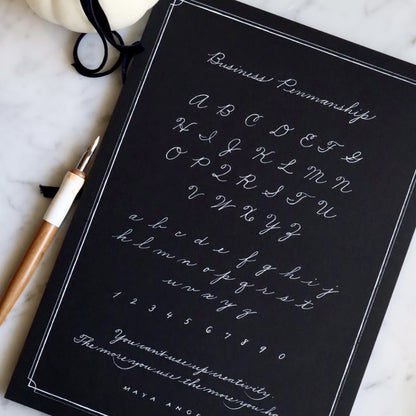 Business Penmanship
A B C D E F G
H I J K L M N
O P Q R S T U
V W X Y Z
a b c d e f g h i j
k l m n o p q r s t
u v w x y z
1 2 3 4 5 6 7 8 9 0
You can't use up creativity.
The more you use the more you ha
MAYA ANGE